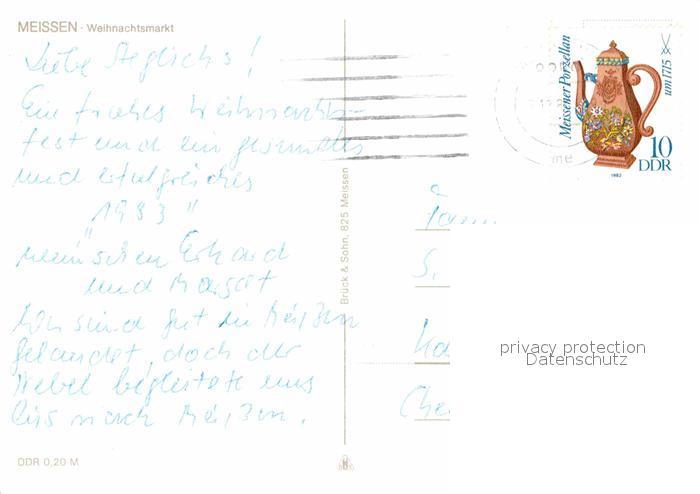 MEISSEN · Weihnachtsmarkt
Liebe Steglichs!
Ein frohes Weihnachts-
fest und ein gesundes
und erfolgreiches
"1983"
wünschen Erhard
und Margot
Wir sind gut in Meißen
gelandet, doch der
Nebel begleitete uns
bis nach Meißen.
DDR 0,20 M
Brück & Sohn, 825 Meissen
Meissener Porzellan
um 1715
10
DDR
1982
Fam.
S.
privacy protection
Datenschutz